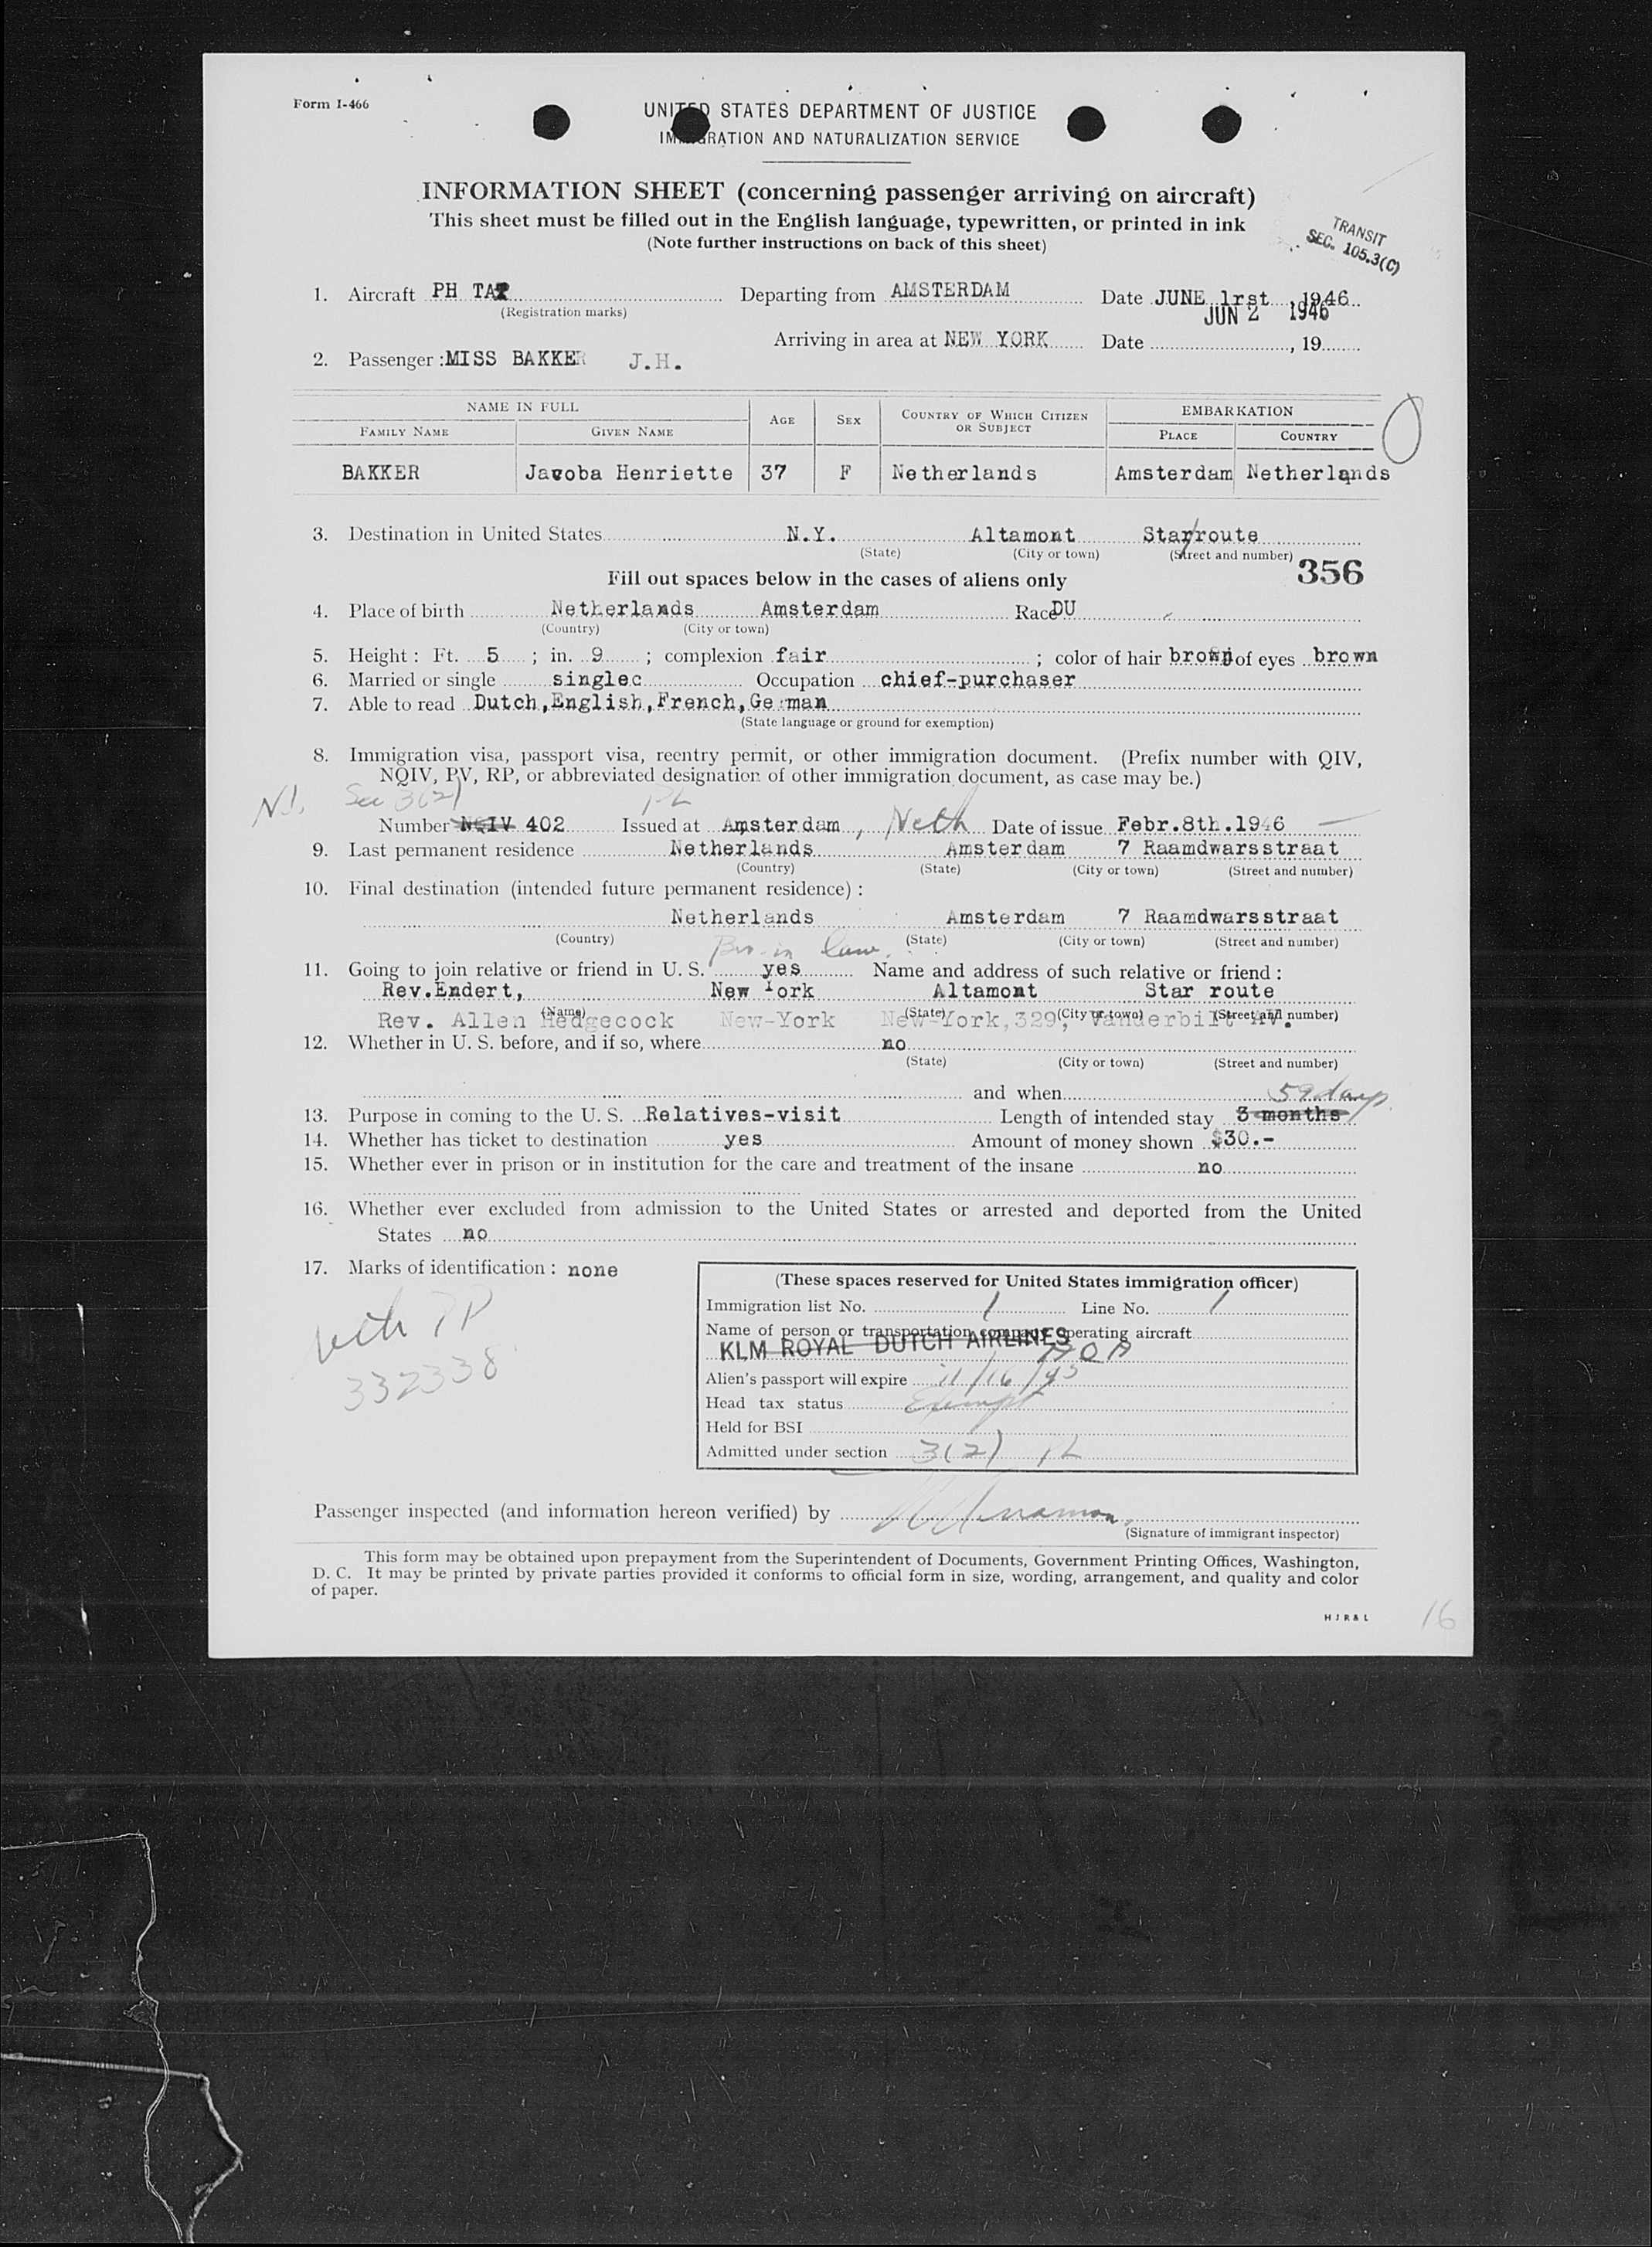 Form I-466
UNITED STATES DEPARTMENT OF JUSTICE
IMMIGRATION AND NATURALIZATION SERVICE
INFORMATION SHEET (concerning passenger arriving on aircraft)
This sheet must be filled out in the English language, typewritten, or printed in ink
(Note further instructions on back of this sheet)
TRANSIT
SEC. 105.3(C)
1. Aircraft PH TA Departing from AMSTERDAM Date JUNE 1rst, 1946
(Registration marks) JUN 2 1946
Arriving in area at NEW YORK Date , 19
2. Passenger : MISS BAKKER J.H.
NAME IN FULL AGE SEX COUNTRY OF WHICH CITIZEN OR SUBJECT EMBARKATION
FAMILY NAME GIVEN NAME PLACE COUNTRY
BAKKER Jacoba Henriette 37 F Netherlands Amsterdam Netherlands
3. Destination in United States N.Y. Altamont Star route
(State) (City or town) (Street and number)
356
Fill out spaces below in the cases of aliens only
4. Place of birth Netherlands Amsterdam Race DU
(Country) (City or town)
5. Height : Ft. 5 ; in. 9 ; complexion fair ; color of hair brown of eyes brown
6. Married or single singlec Occupation chief-purchaser
7. Able to read Dutch,English,French,German
(State language or ground for exemption)
8. Immigration visa, passport visa, reentry permit, or other immigration document. (Prefix number with QIV,
NQIV, PV, RP, or abbreviated designation of other immigration document, as case may be.)
Sec 3(2) PL
Number NQIV 402 Issued at Amsterdam, Neth Date of issue Febr.8th.1946
9. Last permanent residence Netherlands Amsterdam 7 Raamdwarsstraat
(Country) (State) (City or town) (Street and number)
10. Final destination (intended future permanent residence) :
Netherlands Amsterdam 7 Raamdwarsstraat
(Country) (State) (City or town) (Street and number)
Bro. in law.
11. Going to join relative or friend in U. S. yes Name and address of such relative or friend :
Rev.Endert, New York Altamont Star route
(Name) (State) (City or town) (Street and number)
Rev. Allen Hedgecock New-York New-York, 329, Vanderbilt AV.
12. Whether in U. S. before, and if so, where no
(State) (City or town) (Street and number)
and when
59 days
13. Purpose in coming to the U. S. Relatives-visit Length of intended stay 3 months
14. Whether has ticket to destination yes Amount of money shown $30.-
15. Whether ever in prison or in institution for the care and treatment of the insane no
16. Whether ever excluded from admission to the United States or arrested and deported from the United
States no
17. Marks of identification : none
Neth PP
332338
(These spaces reserved for United States immigration officer)
Immigration list No. 1 Line No. 1
Name of person or transportation company operating aircraft
KLM ROYAL DUTCH AIRLINES
Alien's passport will expire
Head tax status Exempt
Held for BSI
Admitted under section 3(2) PL
Passenger inspected (and information hereon verified) by
(Signature of immigrant inspector)
This form may be obtained upon prepayment from the Superintendent of Documents, Government Printing Offices, Washington,
D. C. It may be printed by private parties provided it conforms to official form in size, wording, arrangement, and quality and color
of paper.
H J R & L
16